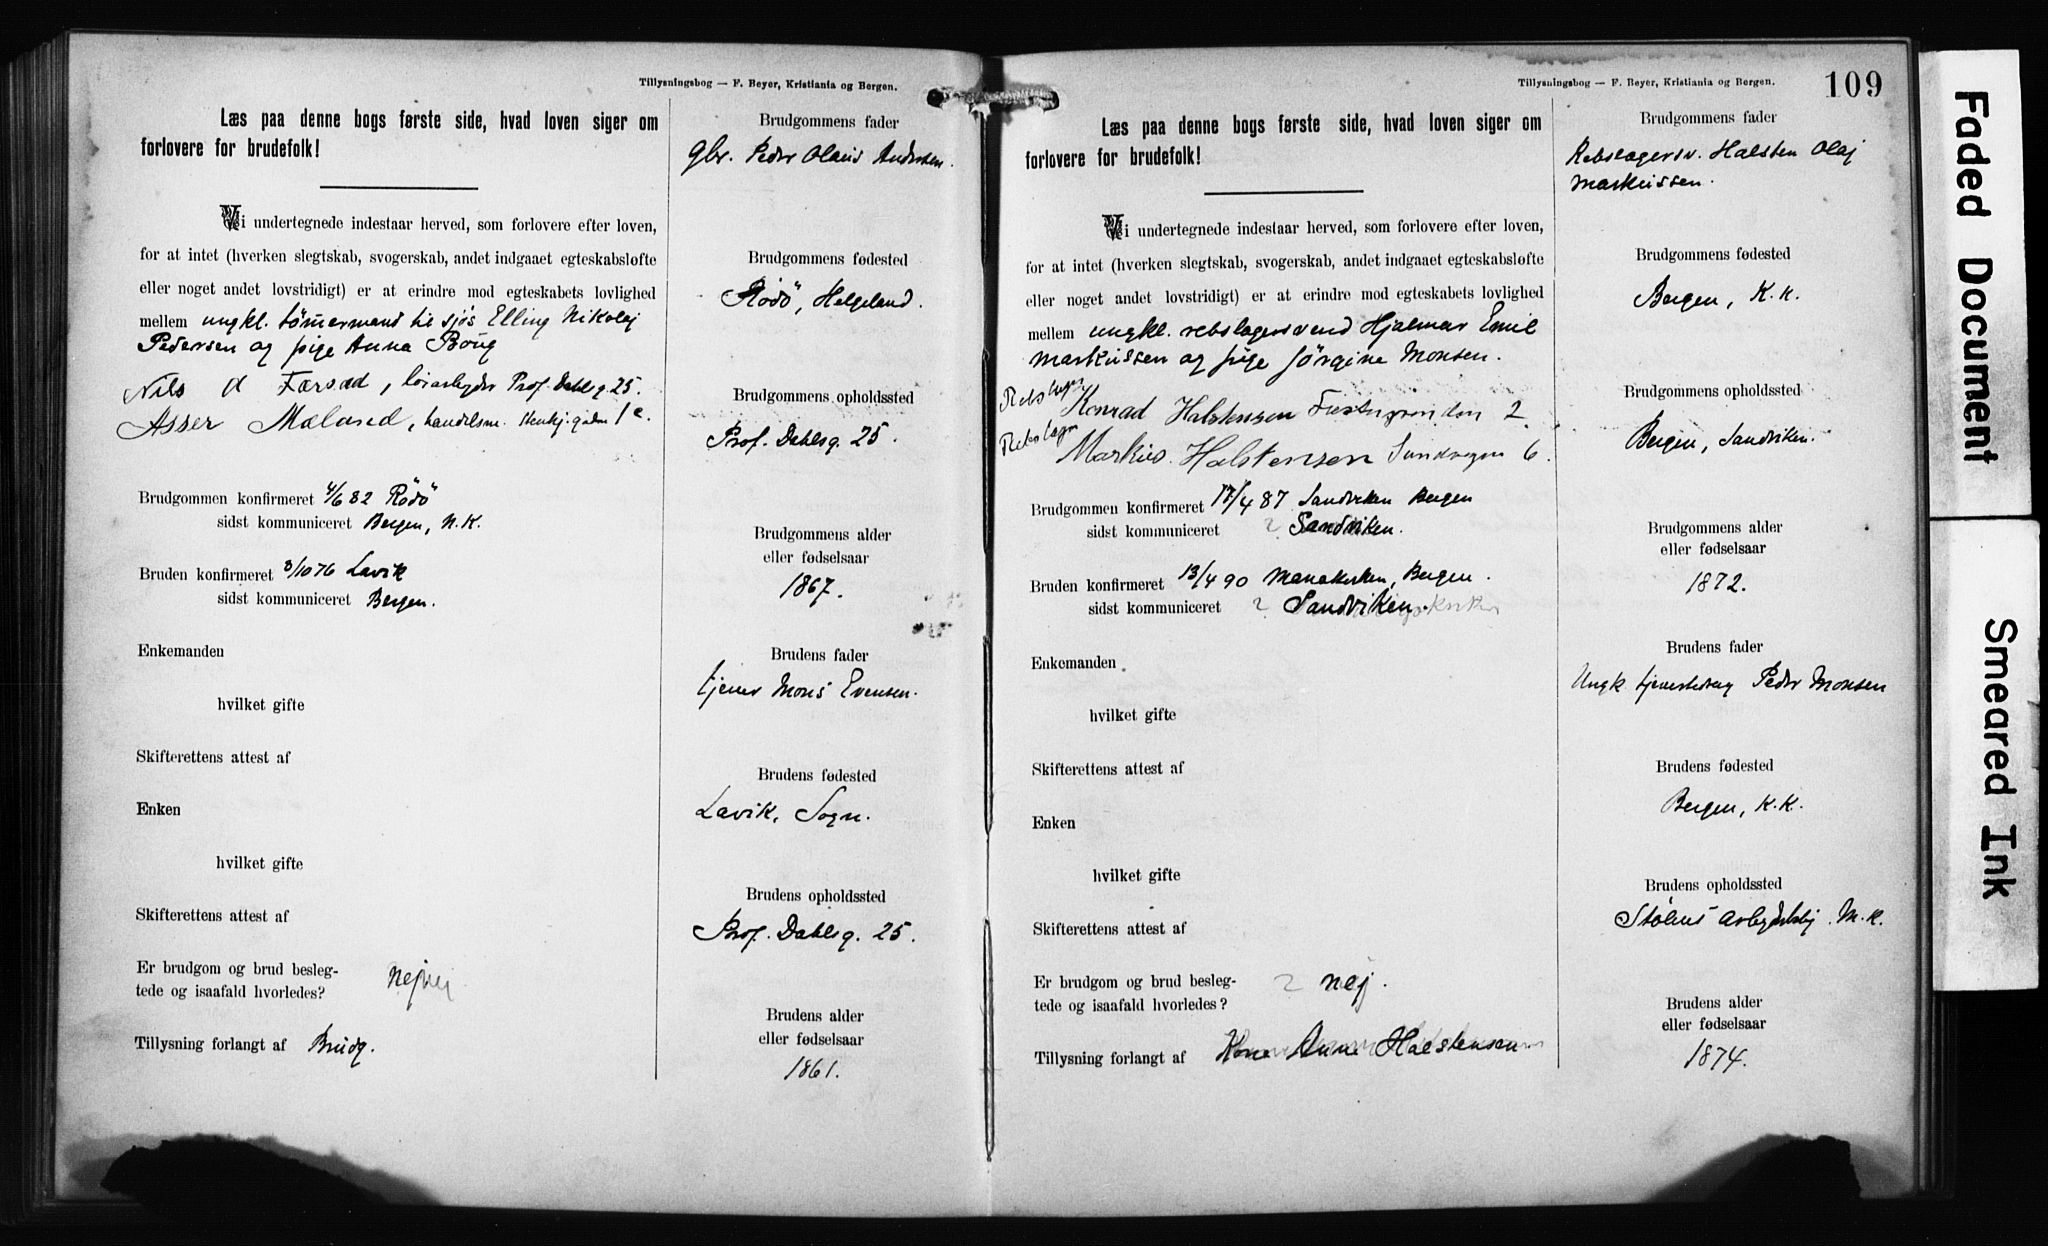 Tillysningsbog — F. Beyer, Kristiania og Bergen.
Læs paa denne bogs første side, hvad loven siger om
forlovere for brudefolk!
Vi undertegnede indestaar herved, som forlovere efter loven,
for at intet (hverken slegtskab, svogerskab, andet indgaaet egteskabsløfte
eller noget andet lovstridigt) er at erindre mod egteskabets lovlighed
mellem ungkl. tömermand til sjös Elling Nikolaj
Pedersen og pige Anna
Nils d Færstad, löisarbeyder Prof. Dahlsg. 25.
Asser Mæland, handelsm. 1c.
Brudgommen konfirmeret 4/6 82 Rödö
sidst kommuniceret Bergen, N. K.
Bruden konfirmeret 8/10 76 Lavik
sidst kommuniceret Bergen.
Enkemanden
hvilket gifte
Skifterettens attest af
Enken
hvilket gifte
Skifterettens attest af
Er brudgom og brud besleg-
tede og isaafald hvorledes? Nej
Tillysning forlangt af Brudg.
Brudgommens fader
gbr. Peder Olaus Andersen.
Brudgommens fødested
Rödö, Helgeland.
Brudgommens opholdssted
Prof. Dahlsg. 25.
Brudgommens alder
eller fødselsaar
1867.
Brudens fader
tjener Mons Evensen.
Brudens fødested
Lavik, Sogn.
Brudens opholdssted
Prof. Dahlsg. 25.
Brudens alder
eller fødselsaar
1861.
Tillysningsbog — F. Beyer, Kristiania og Bergen.
109
Læs paa denne bogs første side, hvad loven siger om
forlovere for brudefolk!
Vi undertegnede indestaar herved, som forlovere efter loven,
for at intet (hverken slegtskab, svogerskab, andet indgaaet egteskabsløfte
eller noget andet lovstridigt) er at erindre mod egteskabets lovlighed
mellem ungkl. rebslagersvend Hjalmar Emil
Markussen og pige Jörgine Monsen.
Rebslager Konrad Halstensen 2
Markus Halstensen Sandvegen 6.
Brudgommen konfirmeret 17/4 87 Sandviken Bergen
sidst kommuniceret Sandviken.
Bruden konfirmeret 13/4 90 Mariakirken, Bergen.
sidst kommuniceret Sandviken.
Enkemanden
hvilket gifte
Skifterettens attest af
Enken
hvilket gifte
Skifterettens attest af
Er brudgom og brud besleg-
tede og isaafald hvorledes? nej.
Tillysning forlangt af Kone Anne Halstensen
Brudgommens fader
Rebslagersv. Halsten Olaj
Markussen.
Brudgommens fødested
Bergen, K. K.
Brudgommens opholdssted
Bergen, Sandviken.
Brudgommens alder
eller fødselsaar
1872.
Brudens fader
Ungk. Peder Monsen
Brudens fødested
Bergen, K. K.
Brudens opholdssted
Stölens Arbeyderbolig. M. K.
Brudens alder
eller fødselsaar
1874.
Faded Document
Smeared Ink